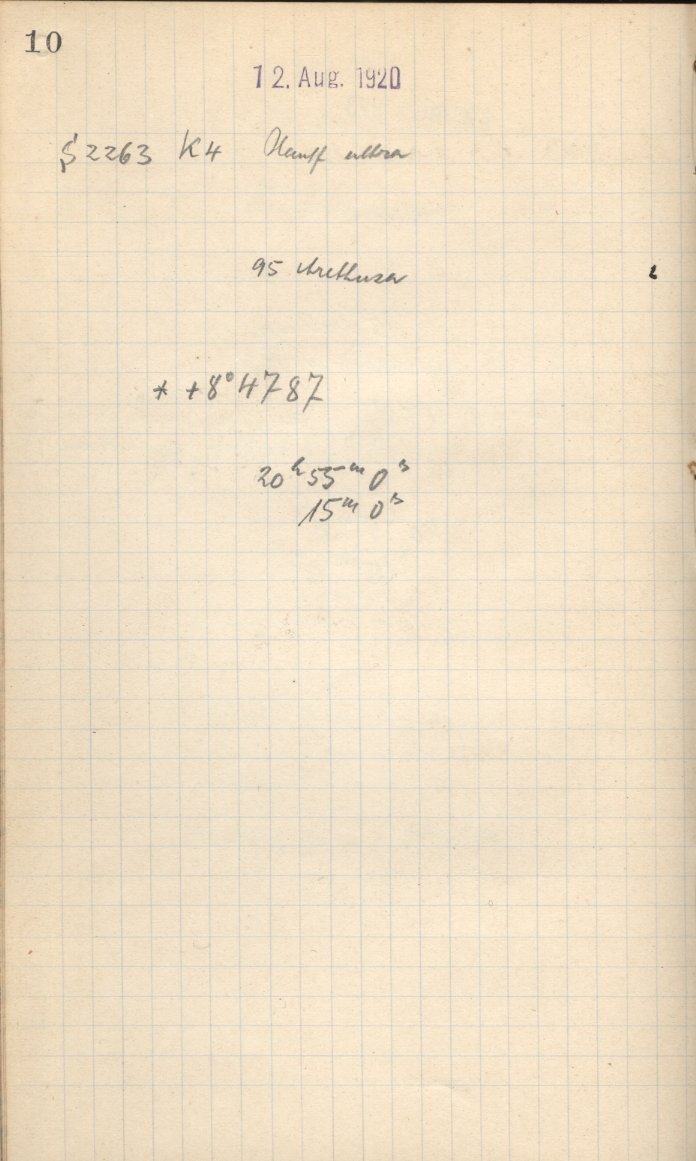 10
12. Aug. 1920
S 2263 K4 Hauff ultra
95 Arethusa
* +8°4787
20ʰ 55ᵐ 0ˢ
15ᵐ 0ˢ